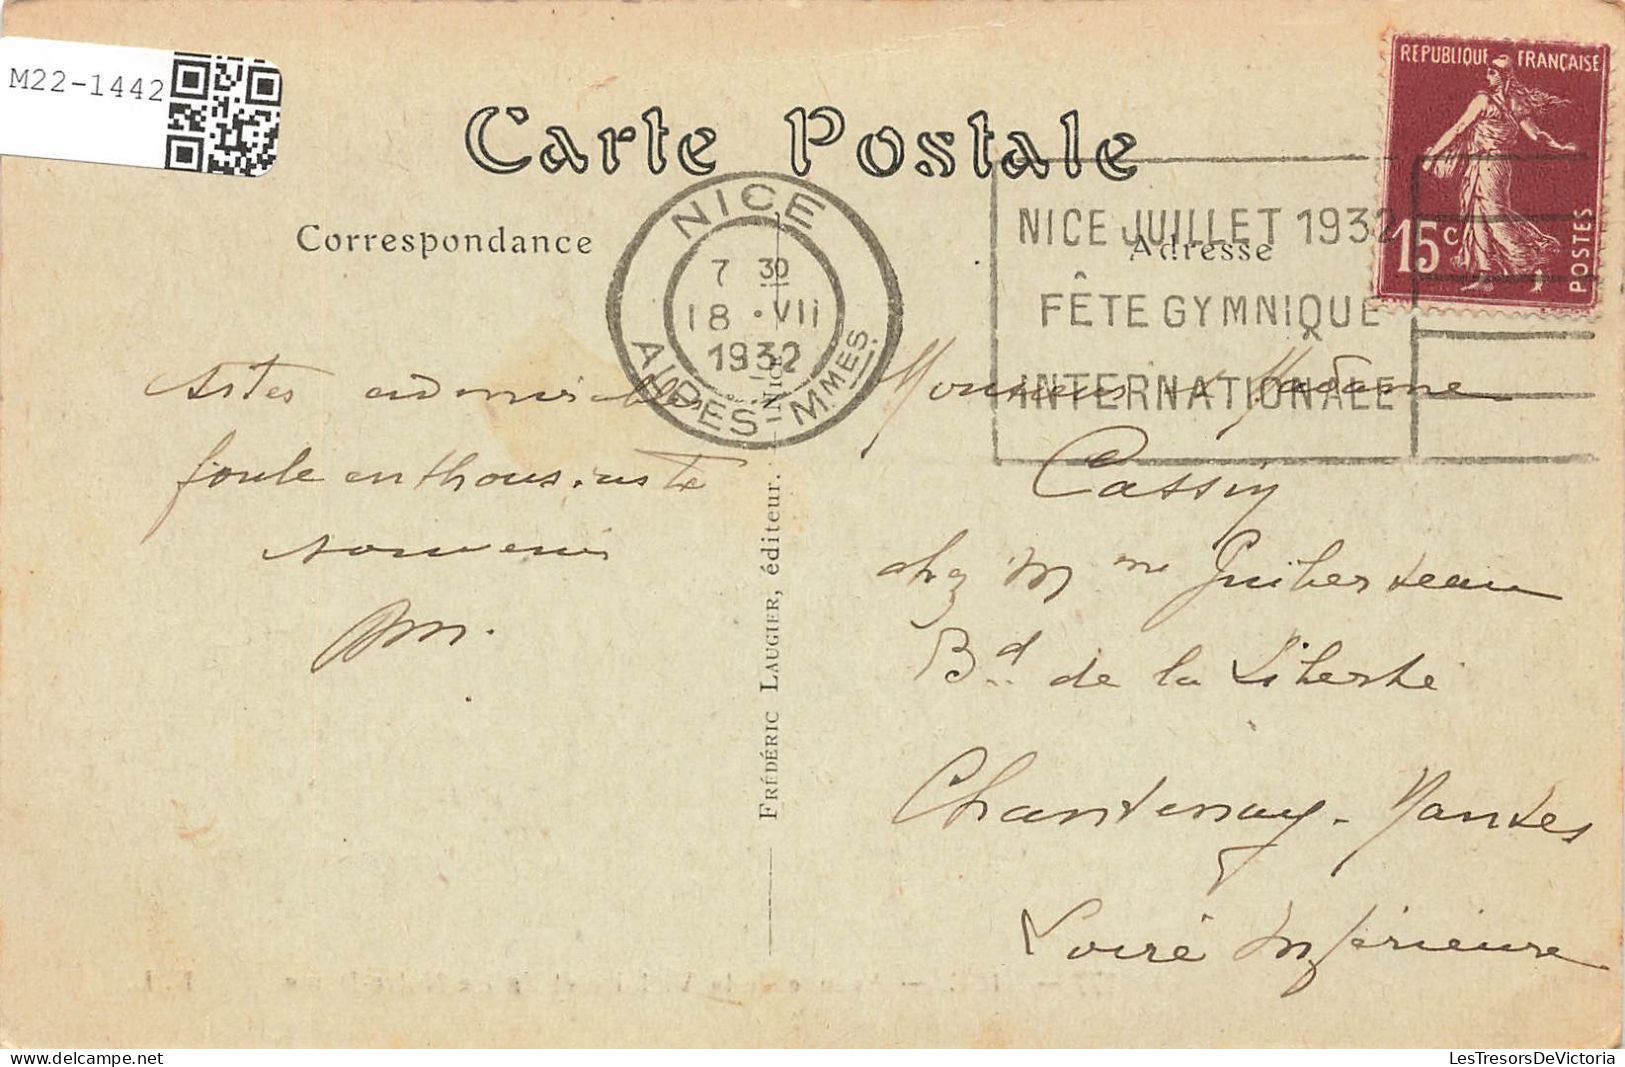 M22-1442
Carte Postale
REPUBLIQUE FRANÇAISE
15c
POSTES
Correspondance
Adresse
NICE
7 30
18 · VII
1932
ALPES-MMES.
NICE JUILLET 1932
FÊTE GYMNIQUE
INTERNATIONALE
admirables
foule enthousiaste
souvenir
FRÉDÉRIC LAUGIER, éditeur. - Nice
Monsieur & Madame
Cassin
chez Mme Guiberteau
Bd de la Liberté
Chantenay - Nantes
Loire Inférieure
LesTresorsDeVictoria
delcampe.net